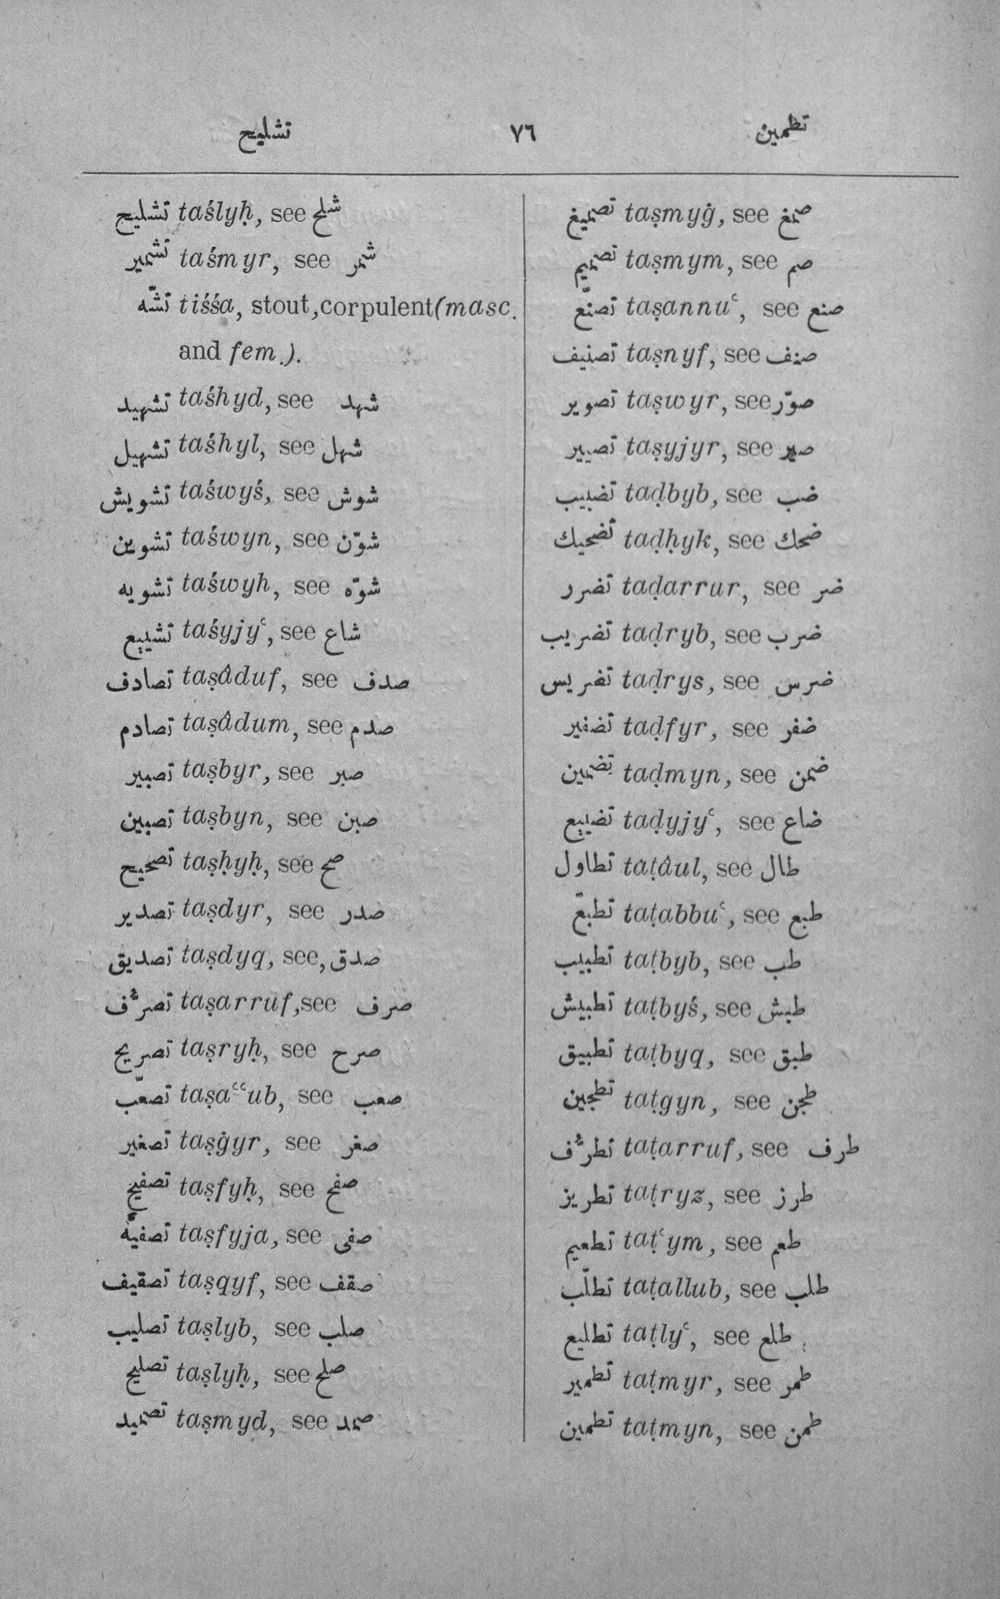 تشليح ٧٦ تظمين
تشليح taślyḥ, see شلح
تشمير taśmyr, see شمر
تشّه tiśśa, stout, corpulent (masc.
and fem.).
تشهيد taśhyd, see شهد
تشهيل taśhyl, see شهل
تشويش taświyś, see شوش
تشوين taśwyn, see شوّن
تشويه taśwyh, see شوّه
تشييع taśyjyʿ, see شاع
تصادف taṣâduf, see صدف
تصادم taṣâdum, see صدم
تصبير taṣbyr, see صبر
تصبين taṣbyn, see صبن
تصحيح taṣḥyḥ, see صح
تصدير taṣdyr, see صدر
تصديق taṣdyq, see, صدق
تصرُّف taṣarruf, see صرف
تصريح taṣryḥ, see صرح
تصعّب taṣaʿʿub, see صعب
تصغير taṣġyr, see صغر
تصفيح taṣfyḥ, see صفح
تصفيّة taṣfyja, see صفى
تصقيف taṣqyf, see صقف
تصليب taṣlyb, see صلب
تصليح taṣlyḥ, see صلح
تصميد taṣmyd, see صمد
تصميغ taṣmyġ, see صمغ
تصميم taṣmym, see صم
تصنّع taṣannuʿ, see صنع
تصنيف taṣnyf, see صنف
تصوير taṣwyr, see صوّر
تصيير taṣyjyr, see صير
تضبيب taḍbyb, see ضب
تضحيك taḍḥyk, see ضحك
تضرر taḍarrur, see ضر
تضريب taḍryb, see ضرب
تضريس taḍrys, see ضرس
تضفير taḍfyr, see ضفر
تضمين taḍmyn, see ضمن
تضييع taḍyjyʿ, see ضاع
تطاول taṭâul, see طال
تطبّع taṭabbuʿ, see طبع
تطبيب taṭbyb, see طب
تطبيش taṭbyś, see طبش
تطبيق taṭbyq, see طبق
تطجين taṭgyn, see طجن
تطرُّف taṭarruf, see طرف
تطريز taṭryz, see طرز
تطعيم taṭʿym, see طعم
تطلّب taṭallub, see طلب
تطليع taṭlyʿ, see طلع
تطمير taṭmyr, see طمر
تطمين taṭmyn, see طمن